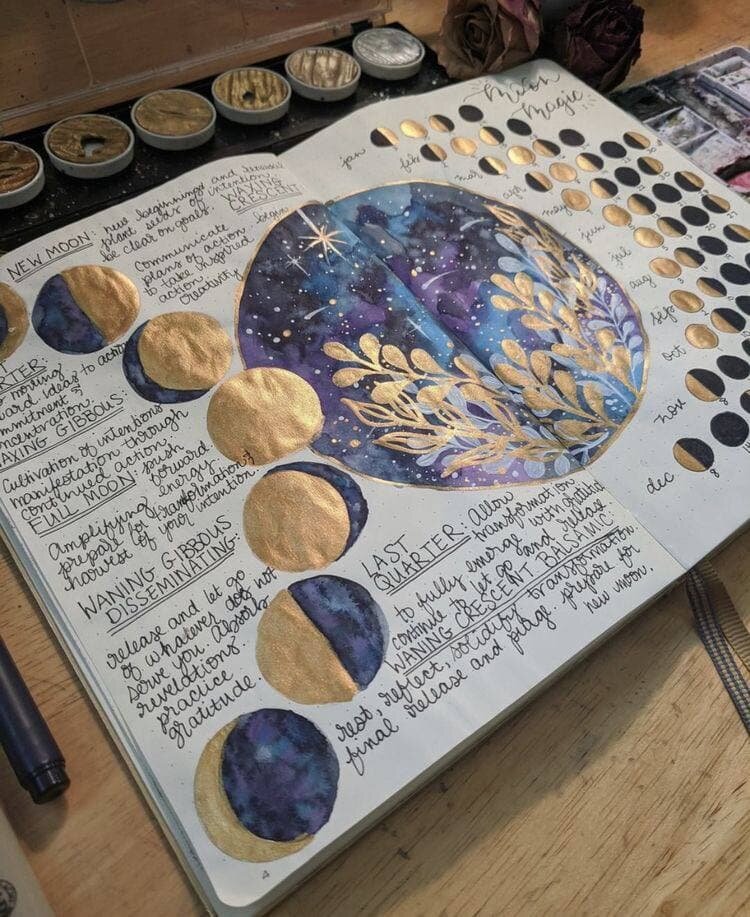 Moon
Magic
NEW MOON: new beginnings and
plant seeds of intention,
be clear on goals.
WAXING
CRESCENT
begin
Communicate
plans of action
to take inspired
action
creativity
to moving
ideas to action
WAXING GIBBOUS:
Cultivation of intentions
manifestation through
continued action.
FULL MOON: push
forward
energy.
Amplifying
prepare for transformation &
harvest of your intention.
WANING GIBBOUS
DISSEMINATING:
release and let go
of whatever does not
serve you. Absorb
revelations
practice
gratitude
LAST
QUARTER: Allow
transformation
to fully emerge with gratitude
continue to let go and release
WANING CRESCENT BALSAMIC
rest, reflect, solidify transformation.
final release and purge. prepare for
new moon.
jan
feb
mar
apr
may
jun
jul
aug
sep
oct
nov 8
dec 8
4